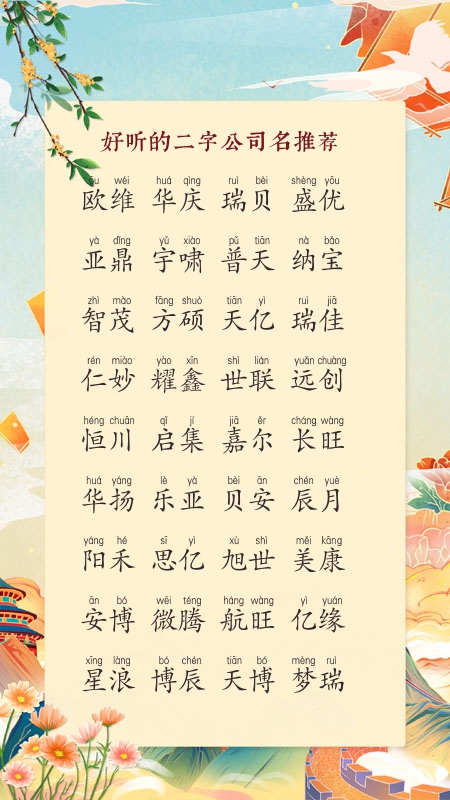 好听的二字公司名推荐
ōu wéi huá qìng ruì bèi shèng yōu
欧维 华庆 瑞贝 盛优
yà dǐng yǔ xiào pǔ tiān nà bǎo
亚鼎 宇啸 普天 纳宝
zhì mào fāng shuò tiān yì ruì jiā
智茂 方硕 天亿 瑞佳
rén miào yào xīn shì lián yuǎn chuàng
仁妙 耀鑫 世联 远创
héng chuān qǐ jí jiā ěr cháng wàng
恒川 启集 嘉尔 长旺
huá yáng lè yà bèi ān chén yuè
华扬 乐亚 贝安 辰月
yáng hé sī yì xù shì měi kāng
阳禾 思亿 旭世 美康
ān bó wēi téng háng wàng yì yuán
安博 微腾 航旺 亿缘
xīng làng bó chén tiān bó mèng ruì
星浪 博辰 天博 梦瑞